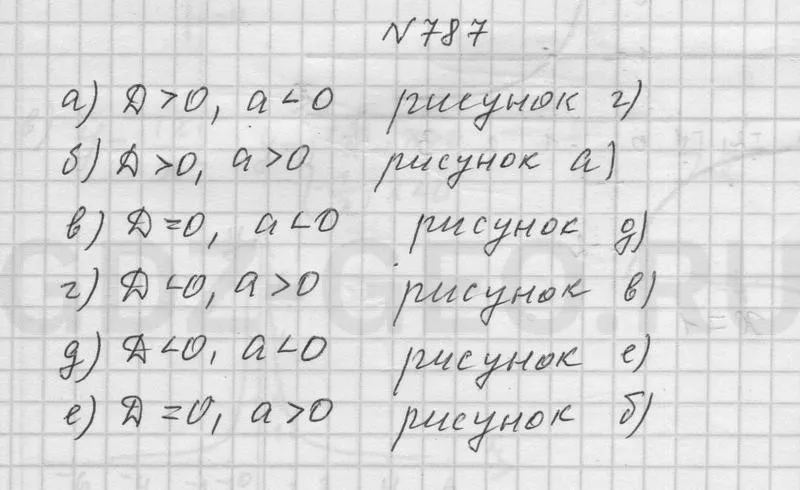 N787
а) Д>0, а<0 рисунок г)
б) Д>0, а>0 рисунок а)
в) Д=0, а<0 рисунок д)
г) Д<0, а>0 рисунок в)
д) Д<0, а<0 рисунок е)
е) Д=0, а>0 рисунок б)